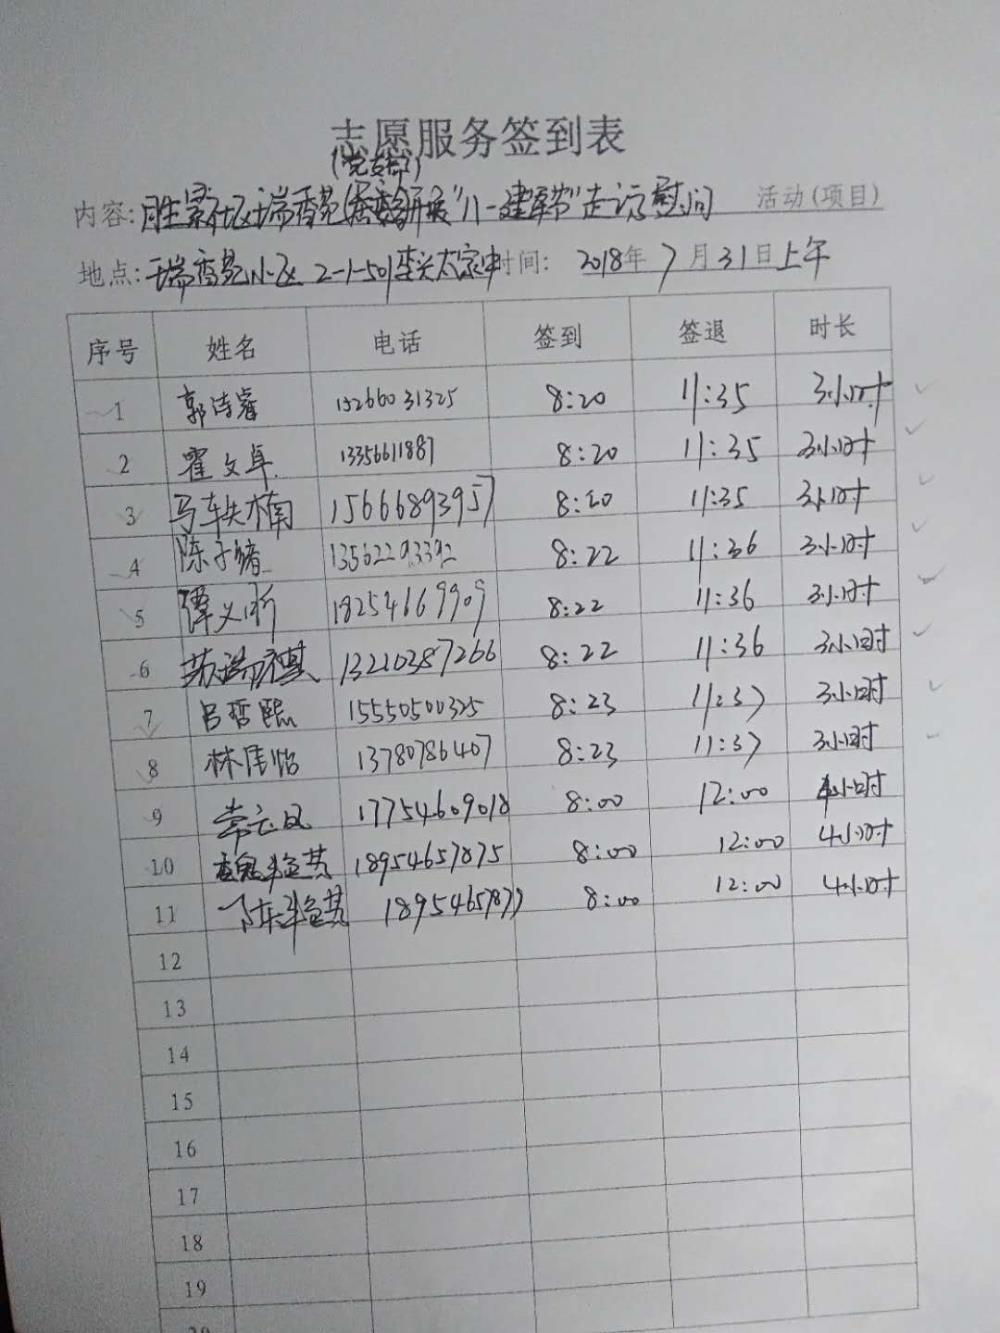 志愿服务签到表
(党支部)
内容:胜景社区瑞香苑居委会开展"八一建军节"走访慰问 活动(项目)
地点:瑞香苑小区 2-1-501李关太家中 时间: 2018年 7月31日上午
序号 姓名 电话 签到 签退 时长
1 郭诗睿 15266031325 8:20 11:35 3小时
2 霍文卓 13356611887 8:20 11:35 3小时
3 马轶楠 15666893957 8:20 11:35 3小时
4 陈子绪 13562293392 8:22 11:36 3小时
5 谭义昕 18254669909 8:22 11:36 3小时
6 苏瑞祺 13210387266 8:22 11:36 3小时
7 吕哲熙 15550500325 8:23 11:37 3小时
8 林佳怡 13780786407 8:23 11:37 3小时
9 常云风 17754609018 8:00 12:00 4小时
10 18954657875 8:00 12:00 4小时
11 8:00 12:00 4小时
12
13
14
15
16
17
18
19
20